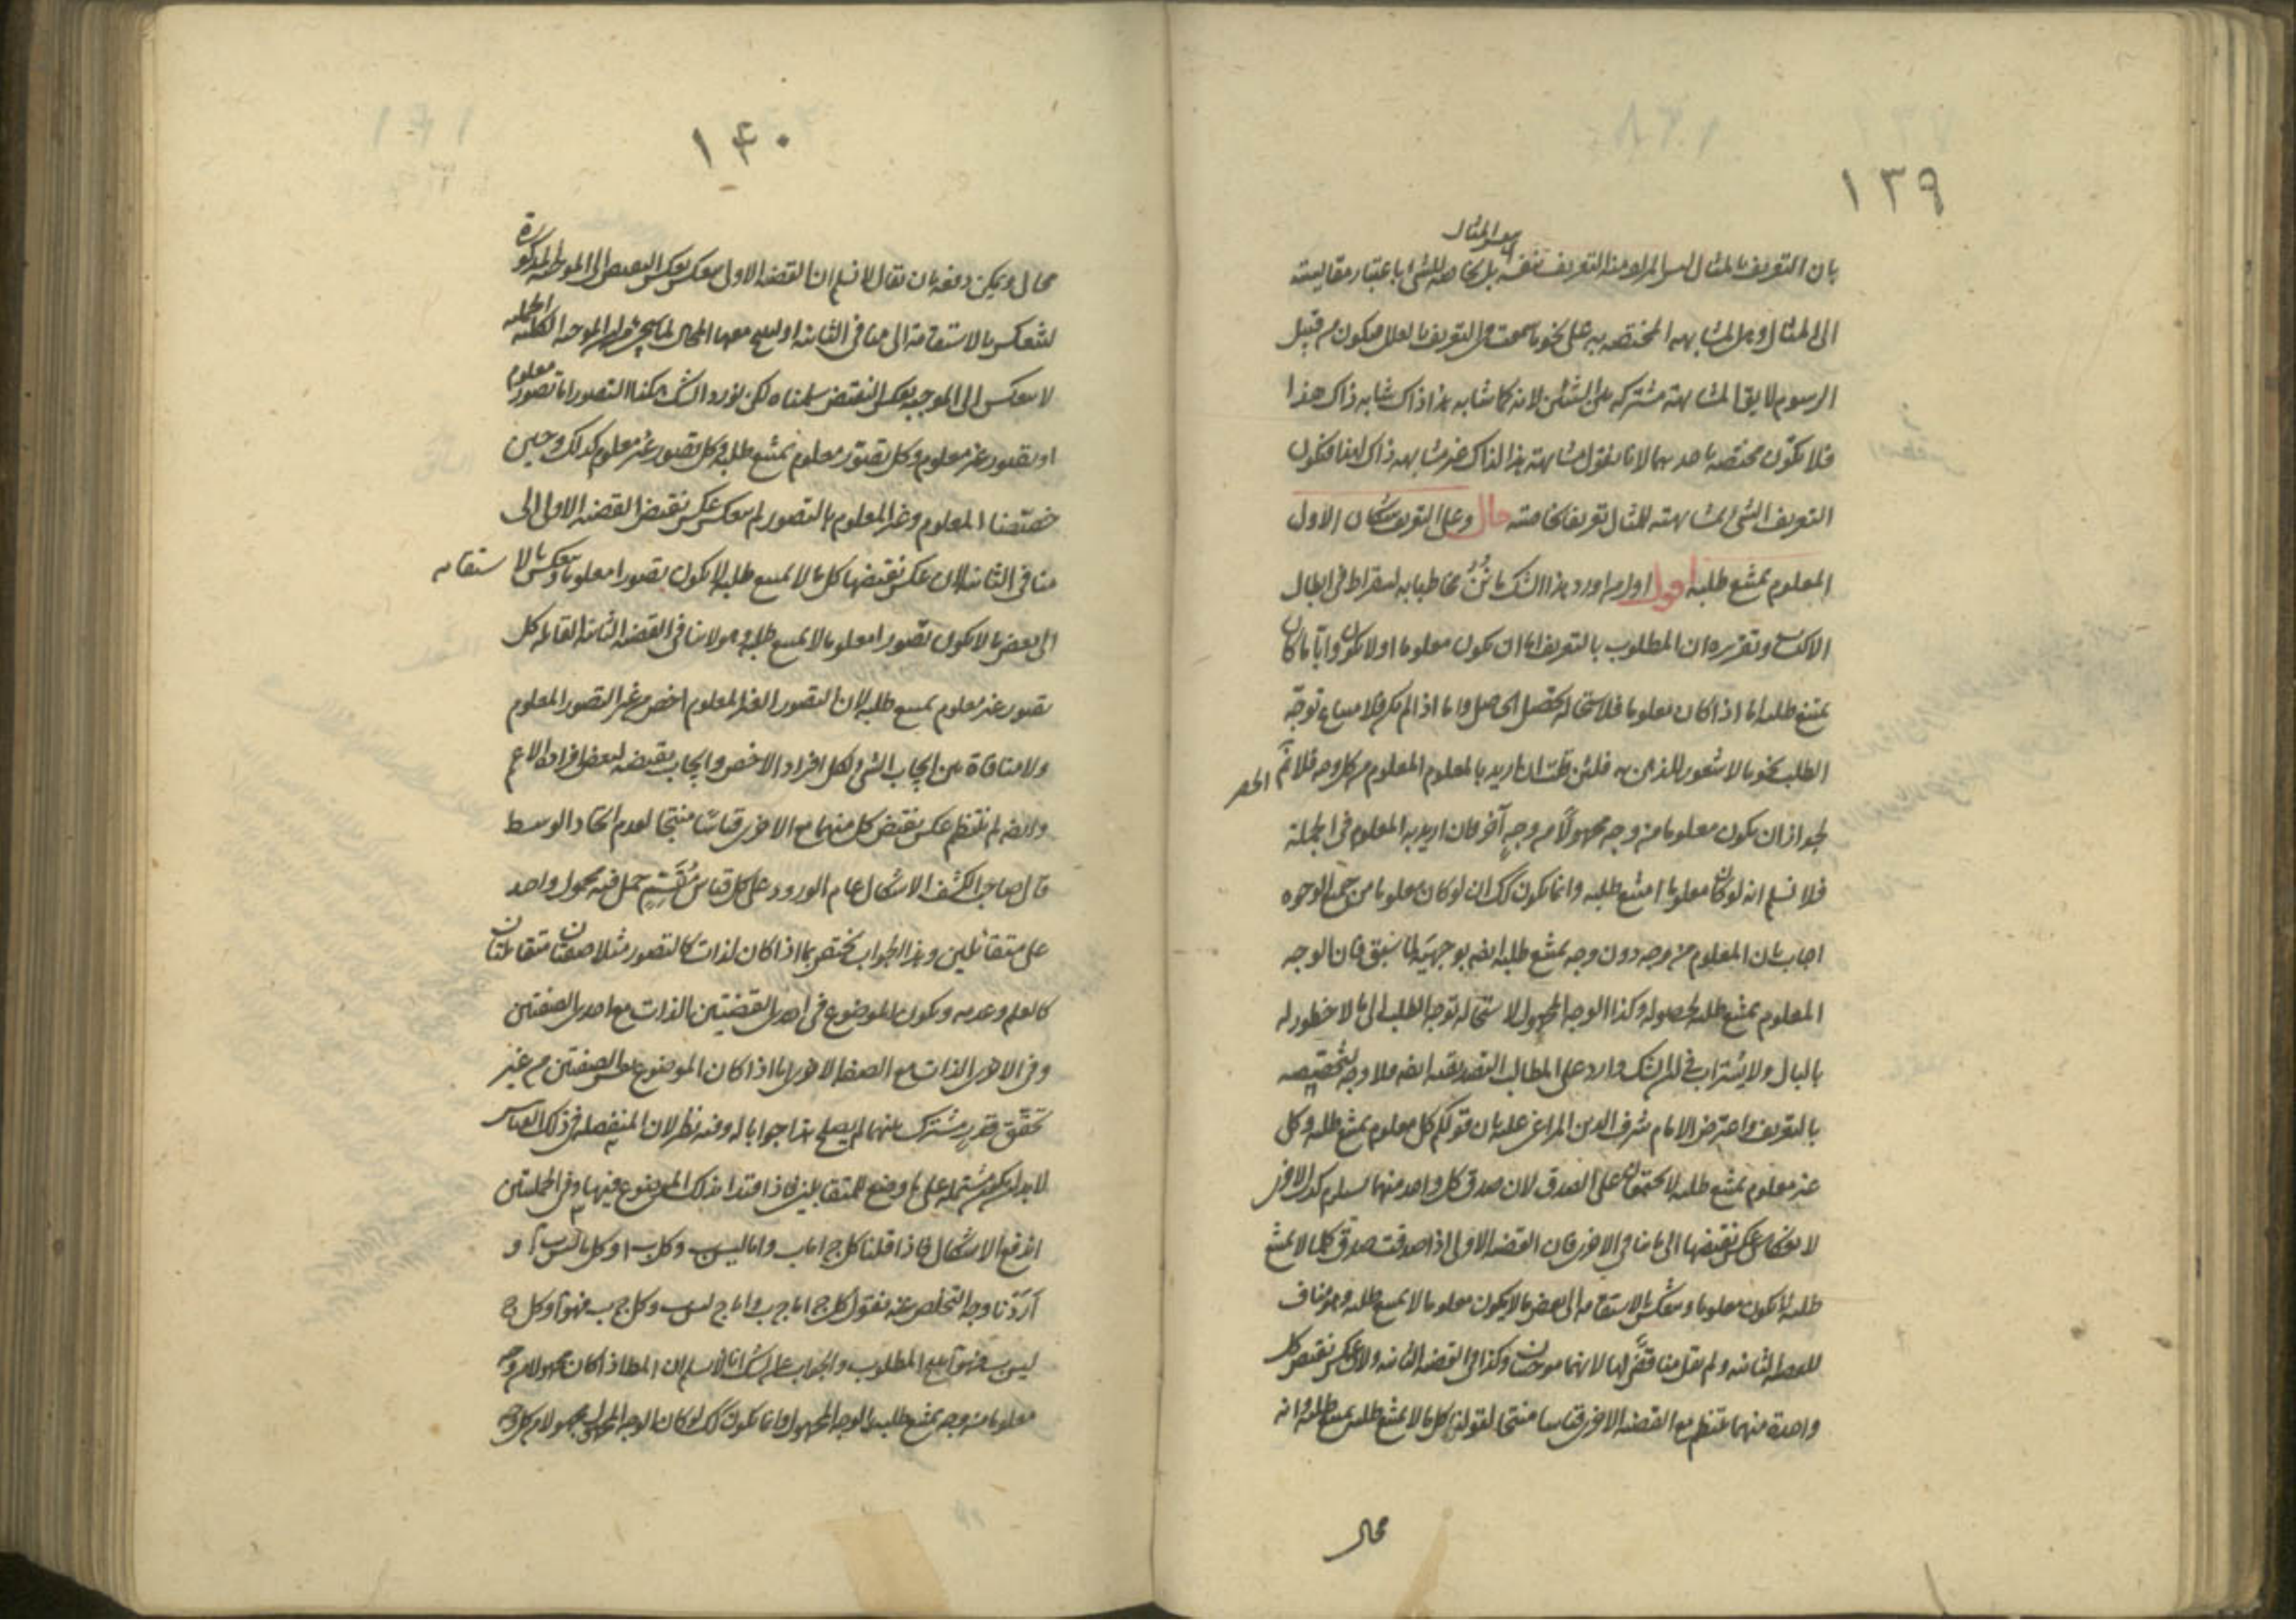 ١٣٩
بان التعريف بالمثال ليس المراد منه التعريف بنفس المثال بل بخاصة للشئ باعتبار مقايسته
الى المثال وهى المشابهة المختصة به على نحو ما سمعت فى التعريف بالعلل فيكون من قبيل
الرسوم لا يق المشابهة مشتركة بين الشيئين لانه كما شابه هذا ذاك شابه ذاك هذا
فلا تكون مختصة باحدهما لانا نقول مشابهة هذا لذاك غير مشابهة ذاك لهذا فيكون
التعريف الشئ بمشابهته للمثال تعريفا بخاصته قال وعلى التعريف شكان الاول
المعلوم يمتنع طلبه اقول اول من اورد هذا الشك مانن مخاطبا به لسقراط فى ابطال
الاكتساب وتقريره ان المطلوب بالتعريف اما ان يكون معلوما او لا يكون وايا ما كان
يمتنع طلبه اما اذا كان معلوما فلاستحالة تحصيل الحاصل واما اذا لم يكن فلامتناع توجه
الطلب نحو ما لا شعور للذهن به فلئن قلت ان اريد بالمعلوم المعلوم من كل وجه فلا نم الحصر
لجواز ان يكون معلوما من وجه مجهولا من وجه آخر وان اريد به المعلوم فى الجملة
فلا نسلم انه لو كان معلوما امتنع طلبه وانما يكون كك ان لو كان معلوما من جميع الوجوه
اجاب بان المعلوم من وجه دون وجه يمتنع طلبه ايضا بوجهيه لما سبق فان الوجه
المعلوم يمتنع طلبه لحصوله وكذا الوجه المجهول لاستحالة توجه الطلب الى ما لا خطور له
بالبال ولا يستراب فى ان الشك وارد على المطالب التصديقية ايضا فلا وجه لتخصيصه
بالتعريف واعترض الامام شرف الدين المراغى عليه بان قولكم كل معلوم يمتنع طلبه وكل
غير معلوم يمتنع طلبه لا يجتمعان على الصدق لان صدق كل واحد منهما يستلزم كذب الاخرى
لانعكاس عكس نقيضها الى ما ينافى الاخرى فان القضية الاولى اذا صدقت صدق كل ما لا يمتنع
طلبه لا يكون معلوما وينعكس بالاستقامة الى بعض ما لا يكون معلوما لا يمتنع طلبه وهو مناف
للقضية الثانية ولم يقل مناقض لها لانهما موجبتان وكذا فى القضية الثانية ولان عكس نقيض كل
واحدة منهما ينتظم مع القضية الاخرى قياسا منتجا لقولنا كل ما لا يمتنع طلبه يمتنع طلبه وانه
محال
١٤٠
محال ويمكن دفعه بان يقال لا نسلم ان القضية الاولى تنعكس بعكس النقيض الى الموجبة المذكورة
لتنعكس بالاستقامة الى منافى الثانية او ينتج معها المحال لما سيجئ من ان الموجبة الكلية
لا تنعكس الى الموجبة بعكس النقيض سلمناه لكن نورد الشك هكذا التصور اما تصور معلوم
او تصور غير معلوم وكل تصور معلوم يمتنع طلبه وكل تصور غير معلوم كذلك وحين
خصصنا المعلوم وغير المعلوم بالتصور لم ينعكس عكس نقيض القضية الاولى الى
منافى الثانية لان عكس نقيضها كل ما لا يمتنع طلبه لا يكون تصورا معلوما وينعكس بالاستقامة
الى بعض ما لا يكون تصورا معلوما لا يمتنع طلبه وهو لا ينافى القضية الثانية القائلة كل
تصور غير معلوم يمتنع طلبه لان التصور الغير المعلوم اخص من غير التصور المعلوم
ولا منافاة بين ايجاب الشئ لكل افراد الاخص وايجاب نقيضه لبعض افراد الاعم
وايضا لم ينتظم عكس نقيض كل منهما مع الاخرى قياسا منتجا لعدم اتحاد الوسط
قال صاحب الكشف الاشكال عام الورود على كل قياس مقسم حمل فيه محمول واحد
على متقابلين وهذا الجواب يختص بما اذا كان لذات كالتصور مثلا صفتان متقابلتان
كالعلم وعدمه ويكون الموضوع فى احدى القضيتين الذات مع احدى الصفتين
وفى الاخرى الذات مع الصفة الاخرى اما اذا كان الموضوع نفس الصفتين من غير
تحقق قدر مشترك بينهما لم يصلح هذا جوابا له وفيه نظر لان المنفصلة فى ذلك القياس
لا بد ان تكون مشتملة على ما وضع للمتقابلين فاذا قيدنا بذلك الموضوع فيها وفى الحمليتين
اندفع الاشكال فاذا قلنا كل ج اما ب واما ليس ب وكل ب ا وكل ما ليس ب ا و
اردنا وجه التخلص عنه نقول كل ج اما ج ب واما ج ليس ب وكل ج ب فهو ا وكل ج
ليس ب فهو ا ينتج المطلوب والجواب عن الشك انا لا نسلم ان المط اذا كان مجهولا من وجه
معلوما من وجه يمتنع طلبه بالوجه المجهول وانما يكون كك لو كان الوجه المجهول مجهولا من كل وجه